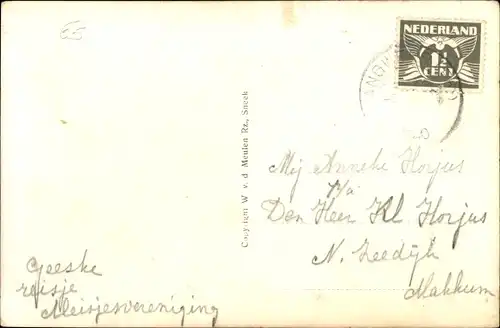 65
NEDERLAND
1½
CENT
Copyright W. v. d. Meulen Rz., Sneek
Mej Anneke Horjus
p/a
Den Heer Kl. Horjus
N. Zeedijk
Makkum
Geeske
reisje
Meisjesvereniging